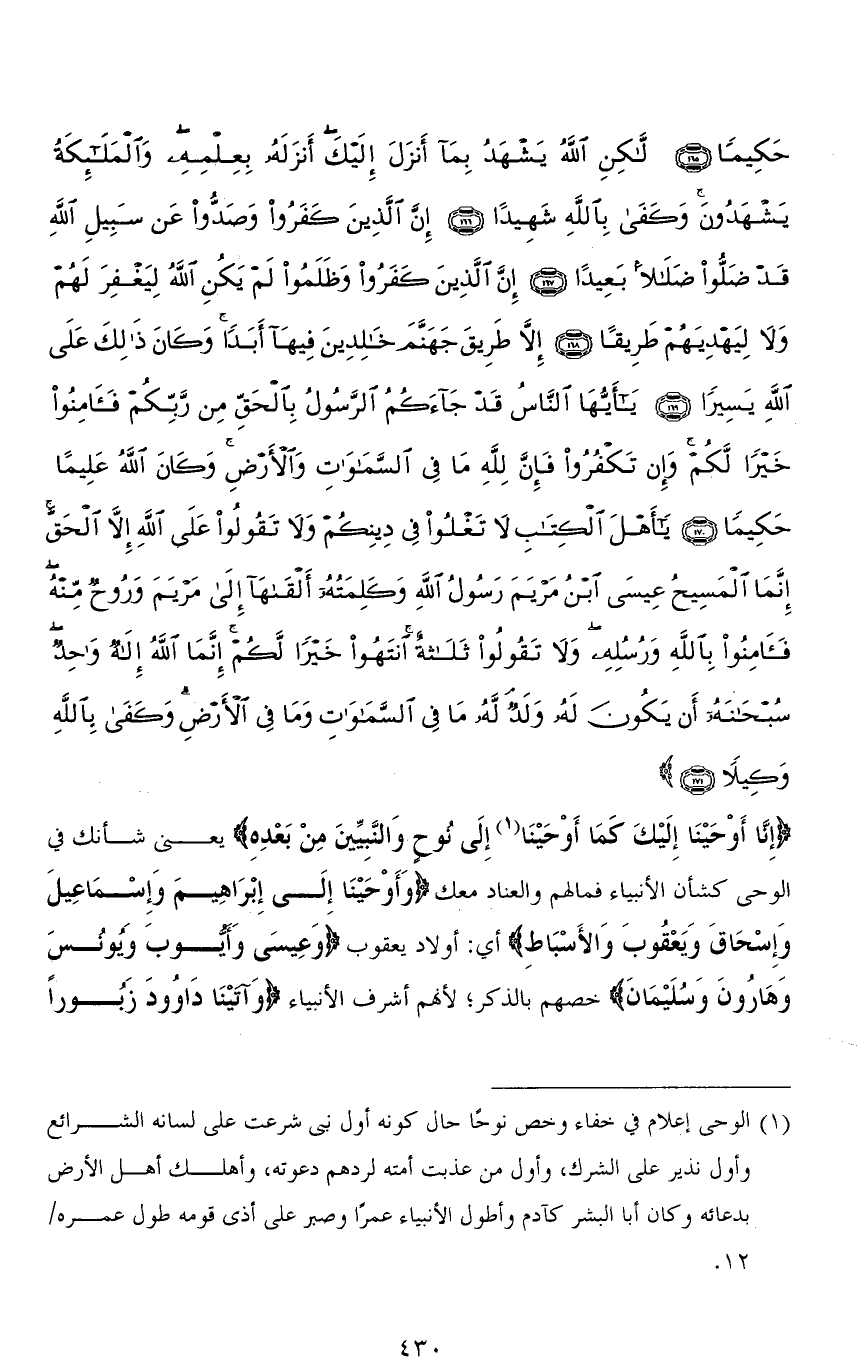 حَكِيمًا ﴿١٦٥﴾ لَّٰكِنِ ٱللَّهُ يَشْهَدُ بِمَآ أَنزَلَ إِلَيْكَ ۖ أَنزَلَهُۥ بِعِلْمِهِۦ ۖ وَٱلْمَلَٰٓئِكَةُ
يَشْهَدُونَ ۚ وَكَفَىٰ بِٱللَّهِ شَهِيدًا ﴿١٦٦﴾ إِنَّ ٱلَّذِينَ كَفَرُوا۟ وَصَدُّوا۟ عَن سَبِيلِ ٱللَّهِ
قَدْ ضَلُّوا۟ ضَلَٰلًۢا بَعِيدًا ﴿١٦٧﴾ إِنَّ ٱلَّذِينَ كَفَرُوا۟ وَظَلَمُوا۟ لَمْ يَكُنِ ٱللَّهُ لِيَغْفِرَ لَهُمْ
وَلَا لِيَهْدِيَهُمْ طَرِيقًا ﴿١٦٨﴾ إِلَّا طَرِيقَ جَهَنَّمَ خَٰلِدِينَ فِيهَآ أَبَدًا ۚ وَكَانَ ذَٰلِكَ عَلَى
ٱللَّهِ يَسِيرًا ﴿١٦٩﴾ يَٰٓأَيُّهَا ٱلنَّاسُ قَدْ جَآءَكُمُ ٱلرَّسُولُ بِٱلْحَقِّ مِن رَّبِّكُمْ فَـَٔامِنُوا۟
خَيْرًا لَّكُمْ ۚ وَإِن تَكْفُرُوا۟ فَإِنَّ لِلَّهِ مَا فِى ٱلسَّمَٰوَٰتِ وَٱلْأَرْضِ ۚ وَكَانَ ٱللَّهُ عَلِيمًا
حَكِيمًا ﴿١٧٠﴾ يَٰٓأَهْلَ ٱلْكِتَٰبِ لَا تَغْلُوا۟ فِى دِينِكُمْ وَلَا تَقُولُوا۟ عَلَى ٱللَّهِ إِلَّا ٱلْحَقَّ ۚ
إِنَّمَا ٱلْمَسِيحُ عِيسَى ٱبْنُ مَرْيَمَ رَسُولُ ٱللَّهِ وَكَلِمَتُهُۥٓ أَلْقَىٰهَآ إِلَىٰ مَرْيَمَ وَرُوحٌ مِّنْهُ ۖ
فَـَٔامِنُوا۟ بِٱللَّهِ وَرُسُلِهِۦ ۖ وَلَا تَقُولُوا۟ ثَلَٰثَةٌ ۚ ٱنتَهُوا۟ خَيْرًا لَّكُمْ ۚ إِنَّمَا ٱللَّهُ إِلَٰهٌ وَٰحِدٌ ۖ
سُبْحَٰنَهُۥٓ أَن يَكُونَ لَهُۥ وَلَدٌ ۘ لَّهُۥ مَا فِى ٱلسَّمَٰوَٰتِ وَمَا فِى ٱلْأَرْضِ ۗ وَكَفَىٰ بِٱللَّهِ
وَكِيلًا ﴿١٧١﴾ ﴾
﴿إِنَّا أَوْحَيْنَا إِلَيْكَ كَمَا أَوْحَيْنَا(١) إِلَى نُوحٍ وَالنَّبِيِّينَ مِنْ بَعْدِهِ﴾ يعنى شأنك في
الوحى كشأن الأنبياء فمالهم والعناد معك ﴿وَأَوْحَيْنَا إِلَى إِبْرَاهِيمَ وَإِسْمَاعِيلَ
وَإِسْحَاقَ وَيَعْقُوبَ وَالأَسْبَاطِ﴾ أي: أولاد يعقوب ﴿وَعِيسَى وَأَيُّوبَ وَيُونُسَ
وَهَارُونَ وَسُلَيْمَانَ﴾ خصهم بالذكر؛ لأنهم أشرف الأنبياء ﴿وَآتَيْنَا دَاوُودَ زَبُوراً
(١) الوحى إعلام في خفاء وخص نوحًا حال كونه أول نبى شرعت على لسانه الشرائع
وأول نذير على الشرك، وأول من عذبت أمته لردهم دعوته، وأهلك أهل الأرض
بدعائه وكان أبا البشر كآدم وأطول الأنبياء عمرًا وصبر على أذى قومه طول عمره/
١٢.
٤٣٠